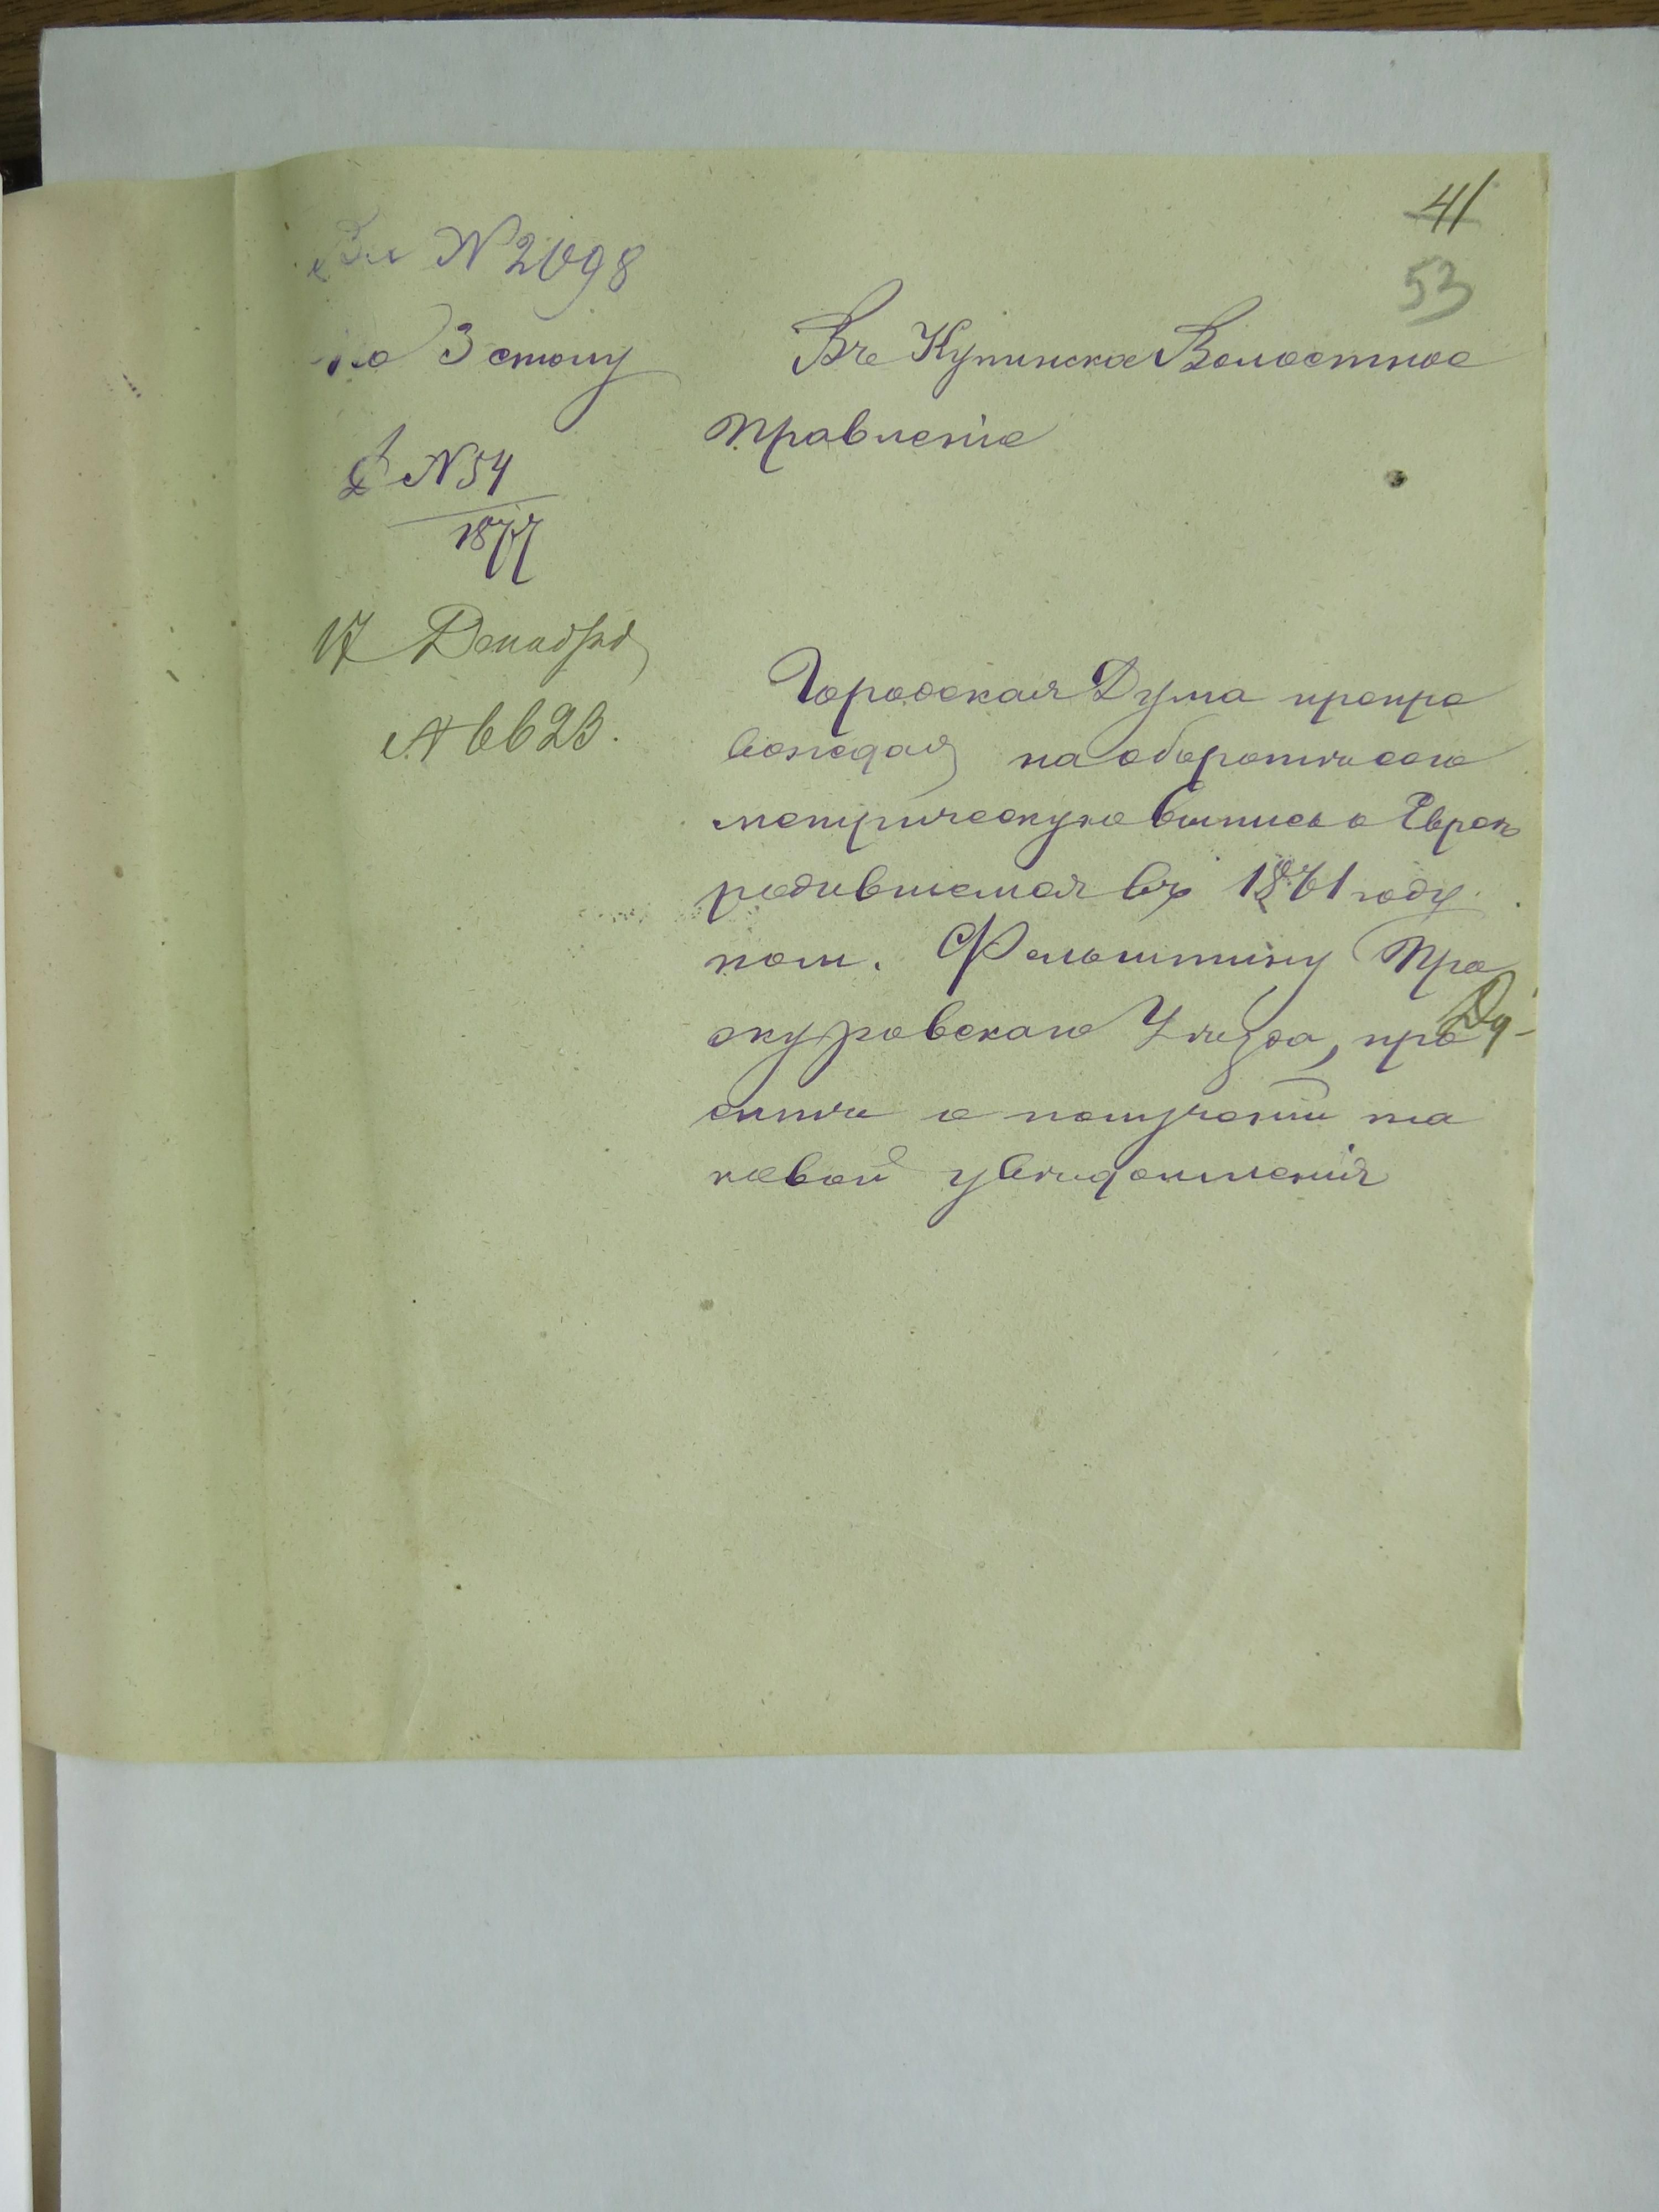 41
53
Вх № 2098
по 3 столу
Д № 54
1877
17 Декабря
№ 6623.
Въ Купинское Волостное
Правленіе
Городская Дума препро
вождая на оборотѣ сего
метрическую выпись о Евреѣ
родившемся въ 1871 году
по м. Фельштину Про
скуровскаго Уѣзда, про
ситъ о полученіи та
ковой увѣдомленія